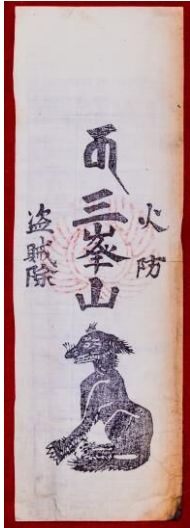 火防
三峯山
盗賊除